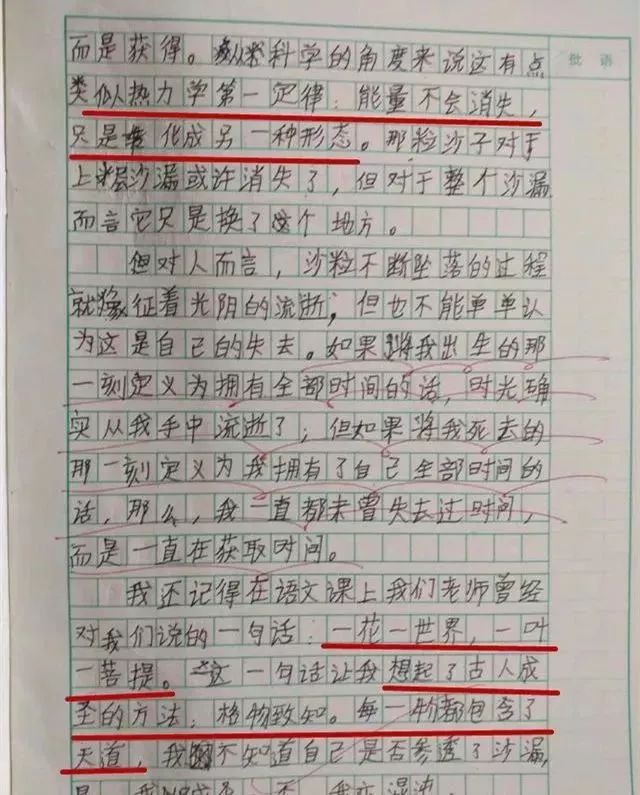 批语
而是获得。从科学的角度来说这有点
类似热力学第一定律：能量不会消失，
只是转化成另一种形态。那粒沙子对于
上层沙漏或许消失了，但对于整个沙漏
而言它只是换了个地方。
但对人而言，沙粒不断坠落的过程
就像征着光阴的流逝，但也不能单单认
为这是自己的失去。如果将我出生的那
一刻定义为拥有全部时间的话，时光确
实从我手中流逝了；但如果将我死去的
那一刻定义为我拥有了自己全部时间的
话，那么，我一直都未曾失去过时间，
而是一直在获取时间。
我还记得在语文课上我们老师曾经
对我们说的一句话：一花一世界，一叶
一菩提。这一句话让我想起了古人成
圣的方法：格物致知。每一物都包含了
天道，我不知道自己是否参透了沙漏，